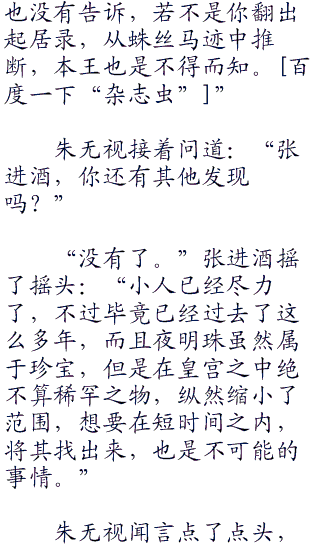 也没有告诉，若不是你翻出
起居录，从蛛丝马迹中推
断，本王也是不得而知。[百
度一下“杂志虫”]”
朱无视接着问道：“张
进酒，你还有其他发现
吗？”
“没有了。”张进酒摇
了摇头：“小人已经尽力
了，不过毕竟已经过去了这
么多年，而且夜明珠虽然属
于珍宝，但是在皇宫之中绝
不算稀罕之物，纵然缩小了
范围，想要在短时间之内，
将其找出来，也是不可能的
事情。”
朱无视闻言点了点头，